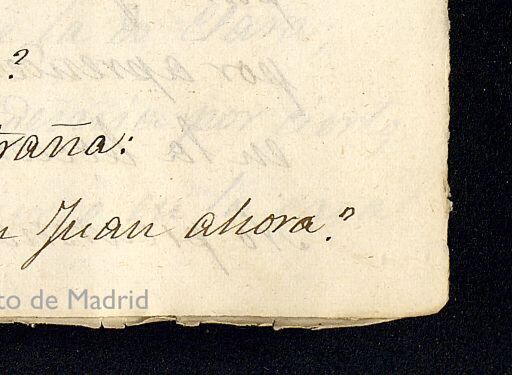 ?
traña:
n Juan ahora?"
to de Madrid